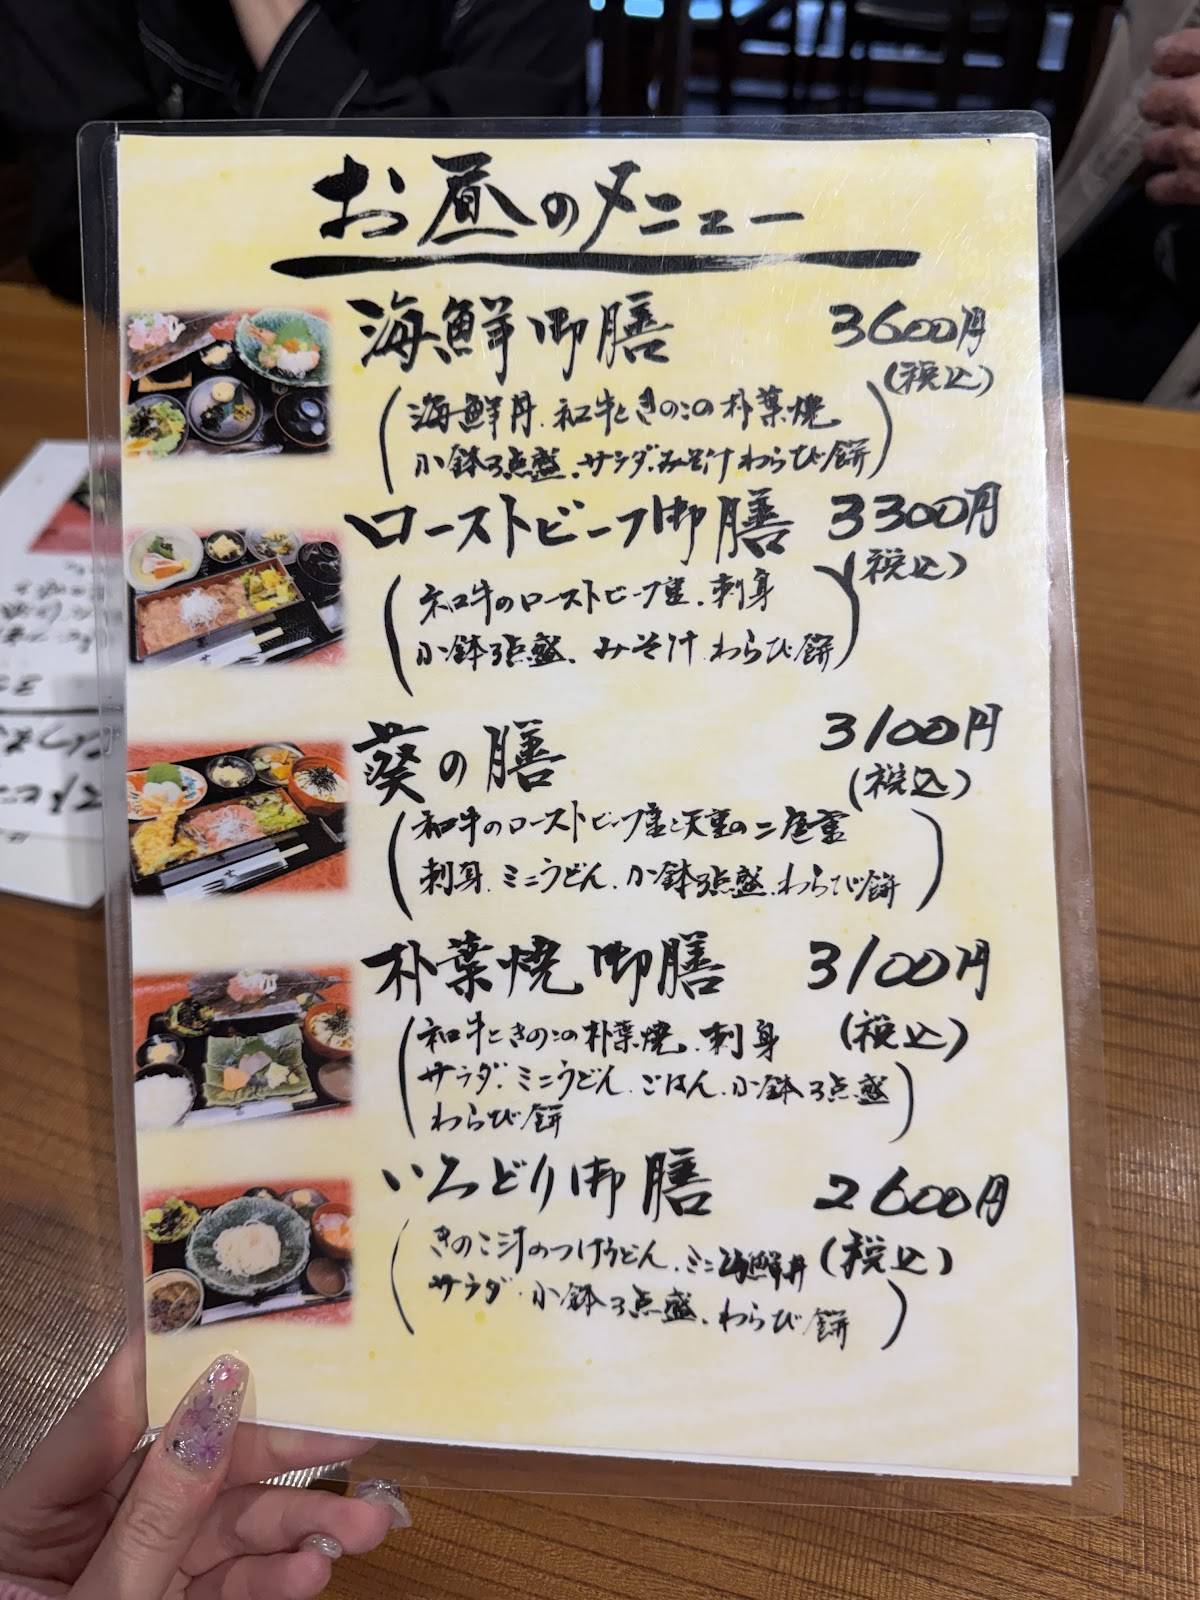 お昼のメニュー
海鮮御膳 3600円
(税込)
(海鮮丼、和牛ときのこの朴葉焼
小鉢3点盛、サラダ、みそ汁、わらび餅)
ローストビーフ御膳 3300円
(税込)
(和牛のローストビーフ重、刺身
小鉢3点盛、みそ汁、わらび餅)
葵の膳 3100円
(税込)
(和牛のローストビーフ重と天重の二色重
刺身、ミニうどん、小鉢3点盛、わらび餅)
朴葉焼御膳 3100円
(和牛ときのこの朴葉焼、刺身 (税込)
サラダ、ミニうどん、ごはん、小鉢3点盛
わらび餅)
いろどり御膳 2600円
(きのこ汁のつけうどん、ミニ海鮮丼 (税込)
サラダ、小鉢3点盛、わらび餅)